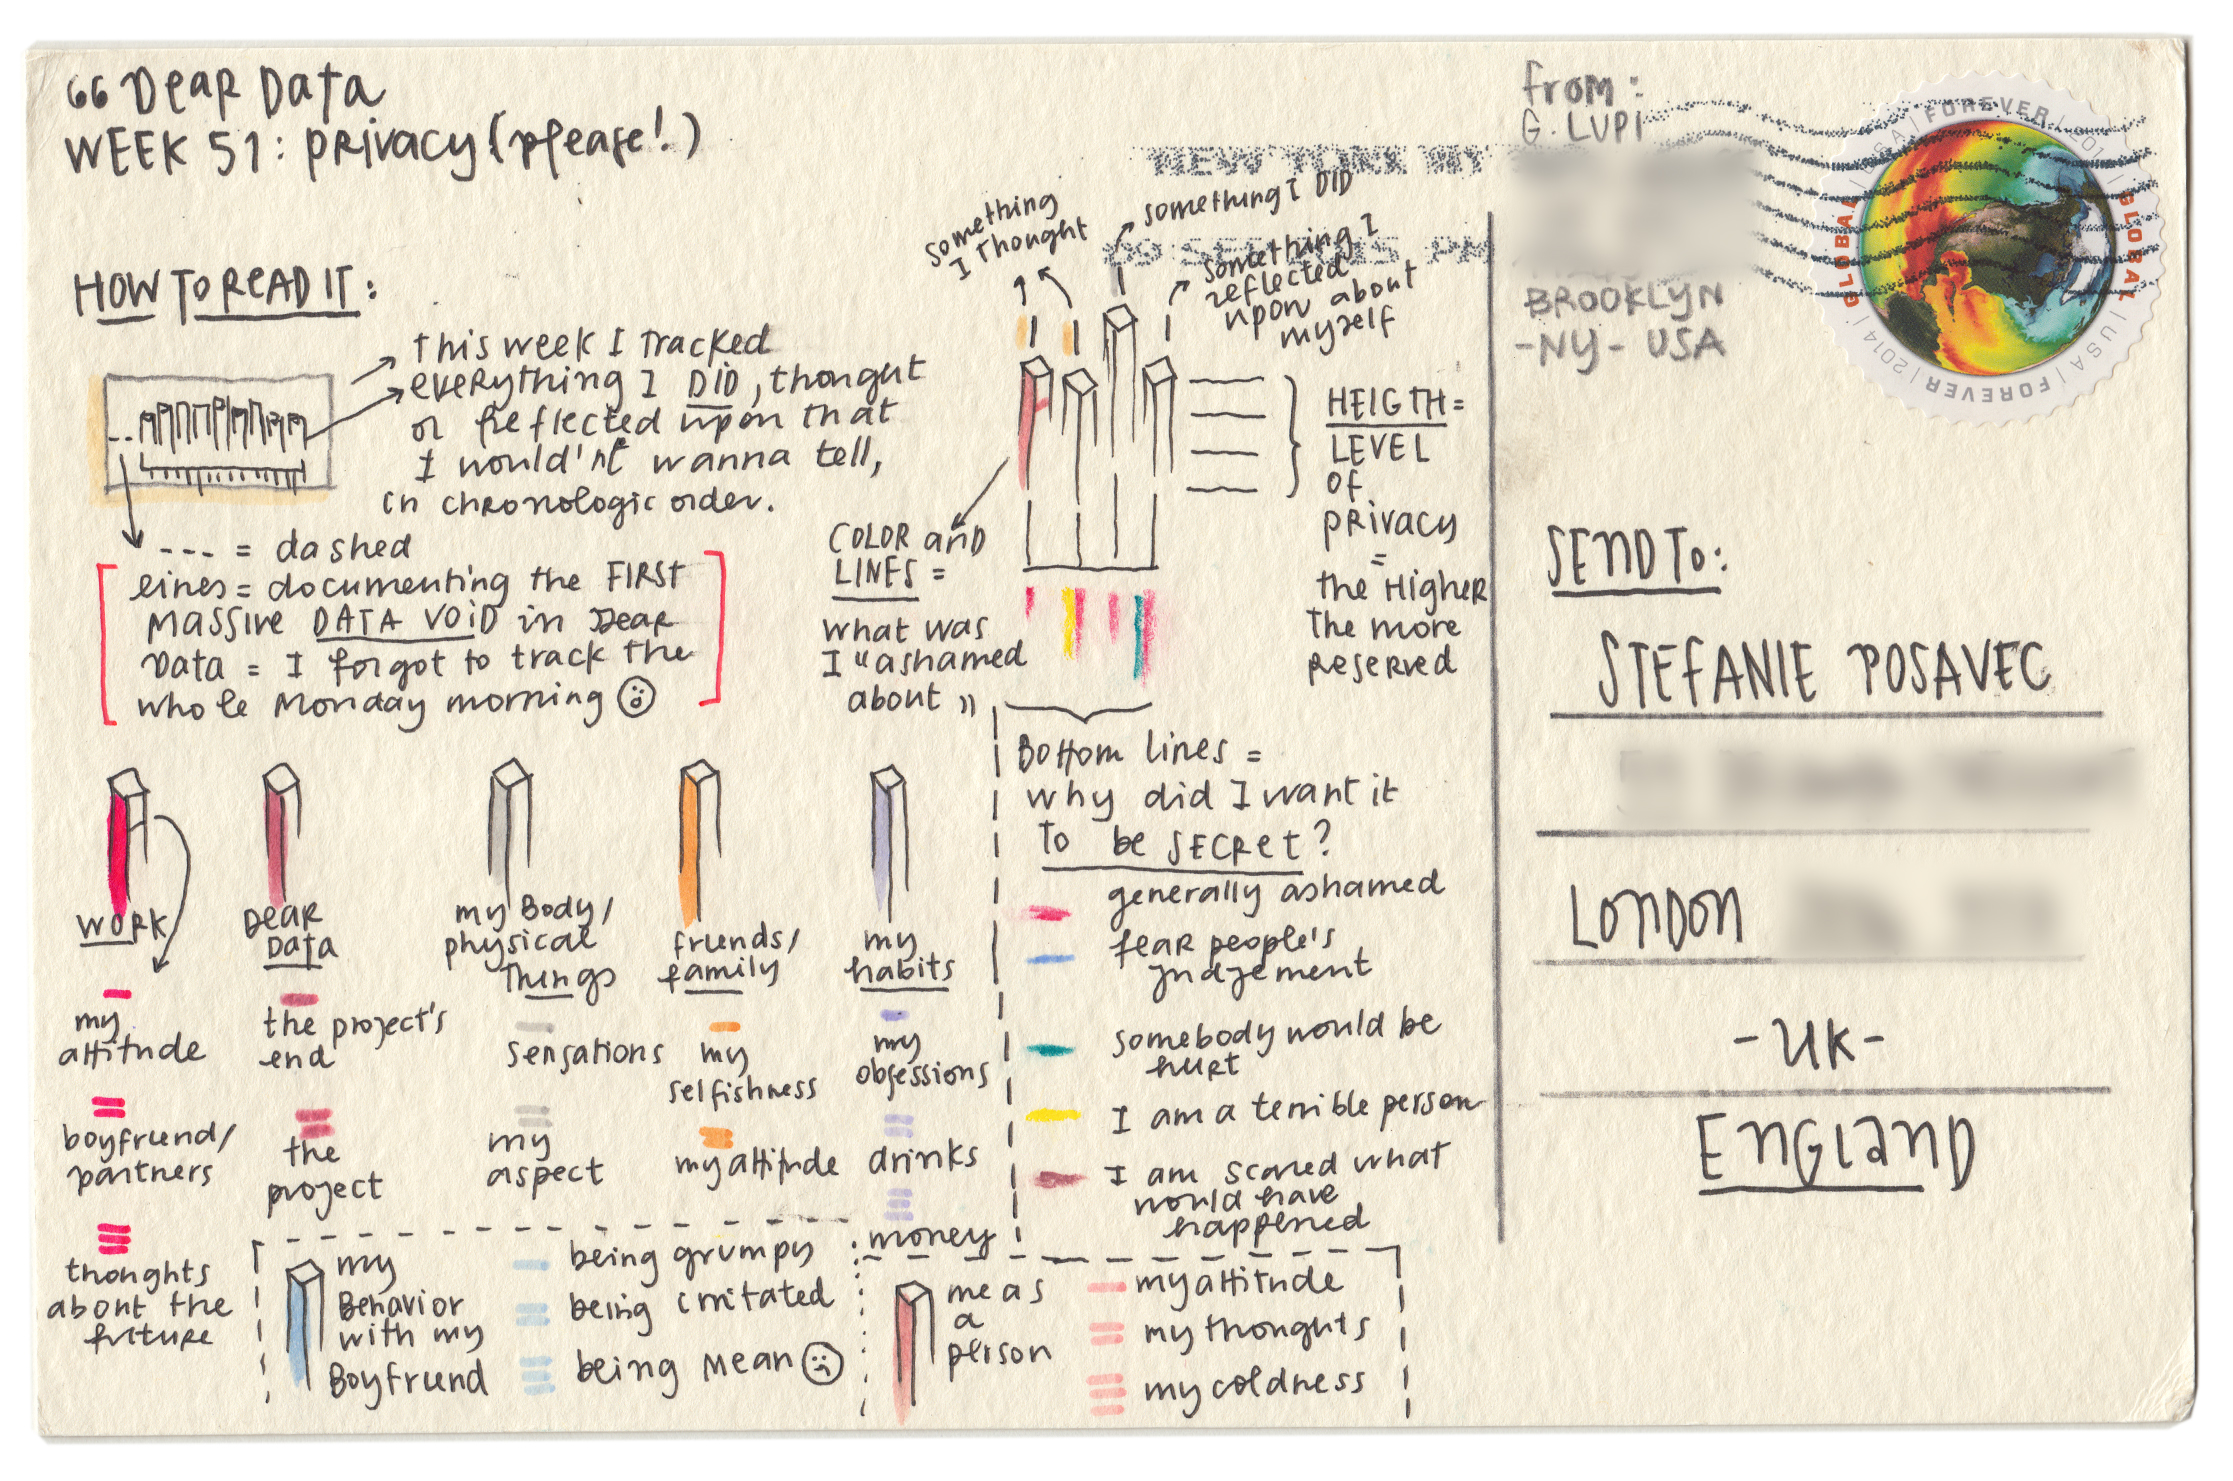 66 Dear Data
WEEK 51: privacy (please!)
HOW TO READ IT:
this week I tracked
everything I DID, thougut
or reflected upon that
I would'nt wanna tell,
in chronologic order.
--- = dashed
lines = documenting the FIRST
MASSIVE DATA VOID in Dear
Data = I forgot to track the
whole Monday morning
something
I thought
something I DID
something I
reflected
upon about
myself
HEIGTH =
LEVEL
OF
PRIVACY
=
the Higher
the more
reserved
COLOR and
LINES =
what was
I "ashamed
about"
WORK
my
attitude
boyfriend/
partners
thoughts
about the
future
DEAR
DATA
the project's
end
the
project
my Body/
physical
things
sensations
my
aspect
friends/
family
my
selfishness
my attitude
my
habits
my
obsessions
drinks
money
Bottom lines =
why did I want it
to be SECRET?
generally ashamed
fear people's
judgement
somebody would be
hurt
I am a terrible person
I am scared what
would have
happened
my
Behavior
with my
Boyfriend
being grumpy
being irritated
being mean
me as
a
person
my attitude
my thoughts
my coldness
from:
G. LUPI
BROOKLYN
-NY- USA
NEW YORK NY
09 SEP PM
GLOBAL | USA | FOREVER | 2014 | GLOBAL | USA | FOREVER | 2014
SEND TO:
STEFANIE POSAVEC
LONDON
-UK-
ENGLAND